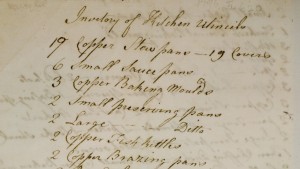 Invetory of Kitchen Utincils
17 Copper Stew pans — 19 Covers
6 Small Sauce pans
3 Copper Baking Moulds
2 Small preserving pans
2 Large — Ditto
2 Copper Fish kettles
2 Copper Brazing pans